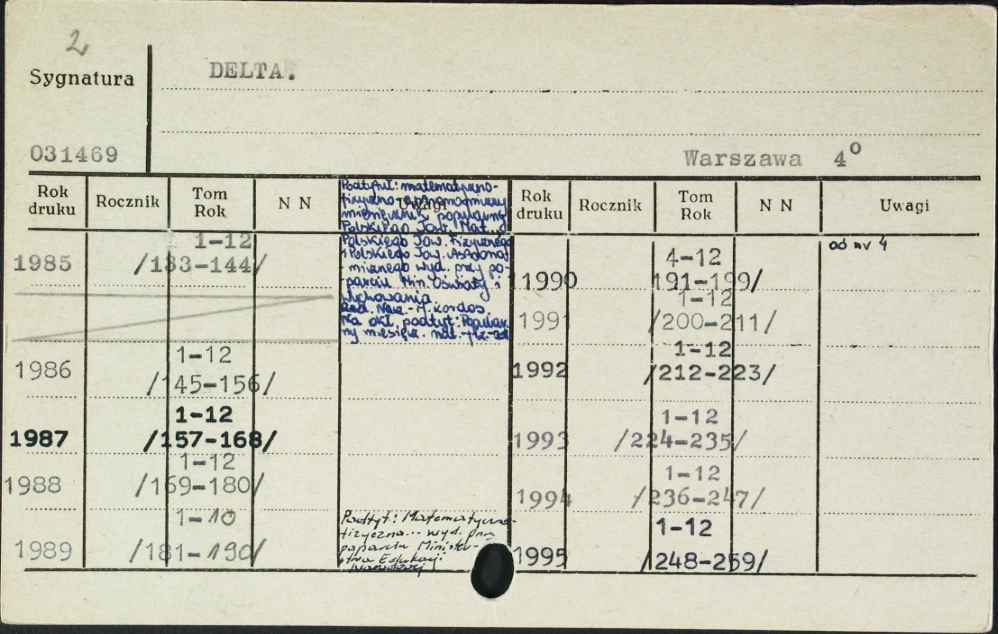 2
Sygnatura
DELTA.
031469
Warszawa 4°
Rok druku Rocznik Tom Rok N N Uwagi Rok druku Rocznik Tom Rok N N Uwagi
Podtytuł: matematyczno-
fizyczno-astronomiczny
miesięcznik popularny
Polskiego Tow. Mat.,
Polskiego Tow. Fizycznego
i Polskiego Tow. Astrono-
micznego wyd. przy po-
parciu Min. Oświaty i
Wychowania
Red. Nacz. - M. Kordos.
Na okł. podtyt: Popular-
ny miesięcz.
1-12
1985 /133-144/
1-12
1986 /145-156/
1-12
1987 /157-168/
1-12
1988 /169-180/
1-10
1989 /181-190/
Podtyt: Matematyczno-
fizyczno... wyd. przy
poparciu Minister-
stwa Edukacji
Narodowej
4-12 od nr 4
1990 191-199/
1-12
1991 /200-211/
1-12
1992 /212-223/
1-12
1993 /224-235/
1-12
1994 /236-247/
1-12
1995 /248-259/